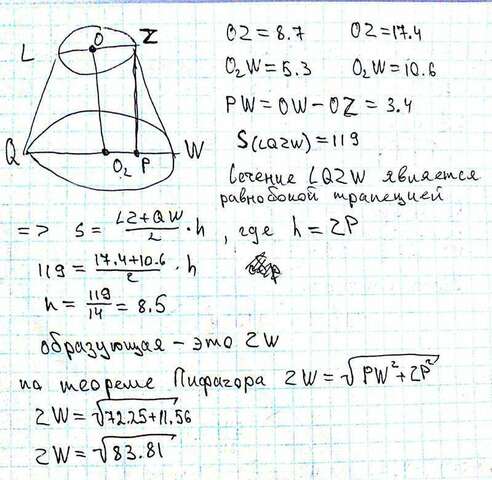 L O Z
Q O₂ P W
OZ = 8.7 OZ = 17.4
O₂W = 5.3 O₂W = 10.6
PW = OW - OZ = 3.4
S(LQZW) = 119
Сечение LQZW является
равнобокой трапецией
=> S = (LZ + QW)/2 · h, где h = ZP
119 = (17.4 + 10.6)/2 · h
h = 119/14 = 8.5
образующая - это ZW
по теореме Пифагора ZW = √(PW² + ZP²)
ZW = √(72.25 + 11.56)
ZW = √(83.81)